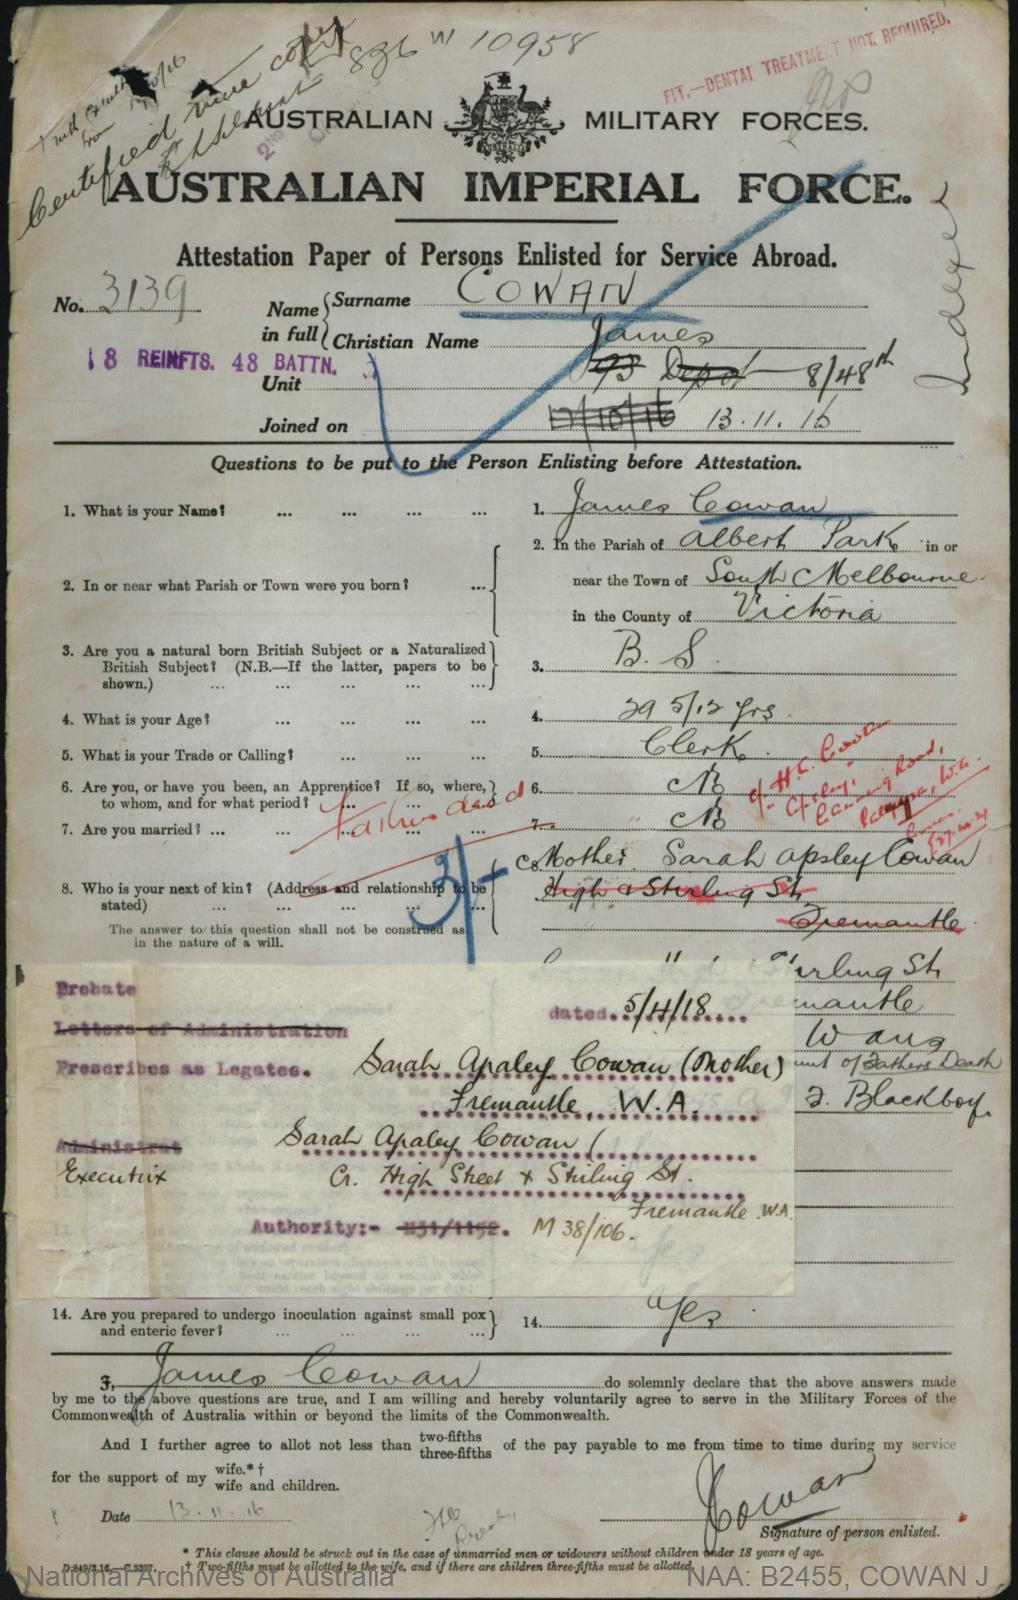 836 W 10958
FIT.—DENTAL TREATMENT NOT REQUIRED.
Certified true copy
AUSTRALIAN MILITARY FORCES.
AUSTRALIAN IMPERIAL FORCE.
Attestation Paper of Persons Enlisted for Service Abroad.
Indexed
No. 3139
Name in full { Surname COWAN
Christian Name James
18 REINFTS. 48 BATTN.
Unit 93 Depot 8/48th
Joined on 17/10/16 13.11.16
Questions to be put to the Person Enlisting before Attestation.
1. What is your Name? ... ... ... ... 1. James Cowan
2. In or near what Parish or Town were you born? ... 2. In the Parish of Albert Park in or
near the Town of South Melbourne
in the County of Victoria
3. Are you a natural born British Subject or a Naturalized
British Subject? (N.B.—If the latter, papers to be
shown.) ... ... ... ... 3. B. S.
4. What is your Age? ... ... ... ... 4. 29 5/12 yrs.
5. What is your Trade or Calling? ... ... ... 5. Clerk
6. Are you, or have you been, an Apprentice? If so, where,
to whom, and for what period? ... ... ... 6. No
c/- H. L. Cowan
Canning Road,
Palmyra, W.A.
7. Are you married? ... ... ... ... ... 7. No
Father dead
3/-
8. Who is your next of kin? (Address and relationship to be
stated) ... ... ... ... ...
The answer to this question shall not be construed as
in the nature of a will.
8. Mother. Sarah Apsley Cowan
High & Stirling St.
Fremantle
irling St.
mantle
Fathers Death
Blackboy.
Probate dated 5/4/18
Letters of Administration
Prescribes as Legates. Sarah Apsley Cowan (Mother)
Fremantle, W.A.
Administrat Sarah Apsley Cowan (
Executrix Cr. High Street & Stirling St.
Fremantle W.A.
Authority:- M31/1152. M 38/106.
14. Are you prepared to undergo inoculation against small pox
and enteric fever? ... ... ... ... 14. Yes
I, James Cowan do solemnly declare that the above answers made
by me to the above questions are true, and I am willing and hereby voluntarily agree to serve in the Military Forces of the
Commonwealth of Australia within or beyond the limits of the Commonwealth.
And I further agree to allot not less than two-fifths three-fifths of the pay payable to me from time to time during my service
for the support of my wife.*† wife and children.
Date 13.11.16
J Cowan
Signature of person enlisted.
* This clause should be struck out in the case of unmarried men or widowers without children under 18 years of age.
D.849/3.16.—C.3207. † Two-fifths must be allotted to the wife, and if there are children three-fifths must be allotted.
National Archives of Australia NAA: B2455, COWAN J